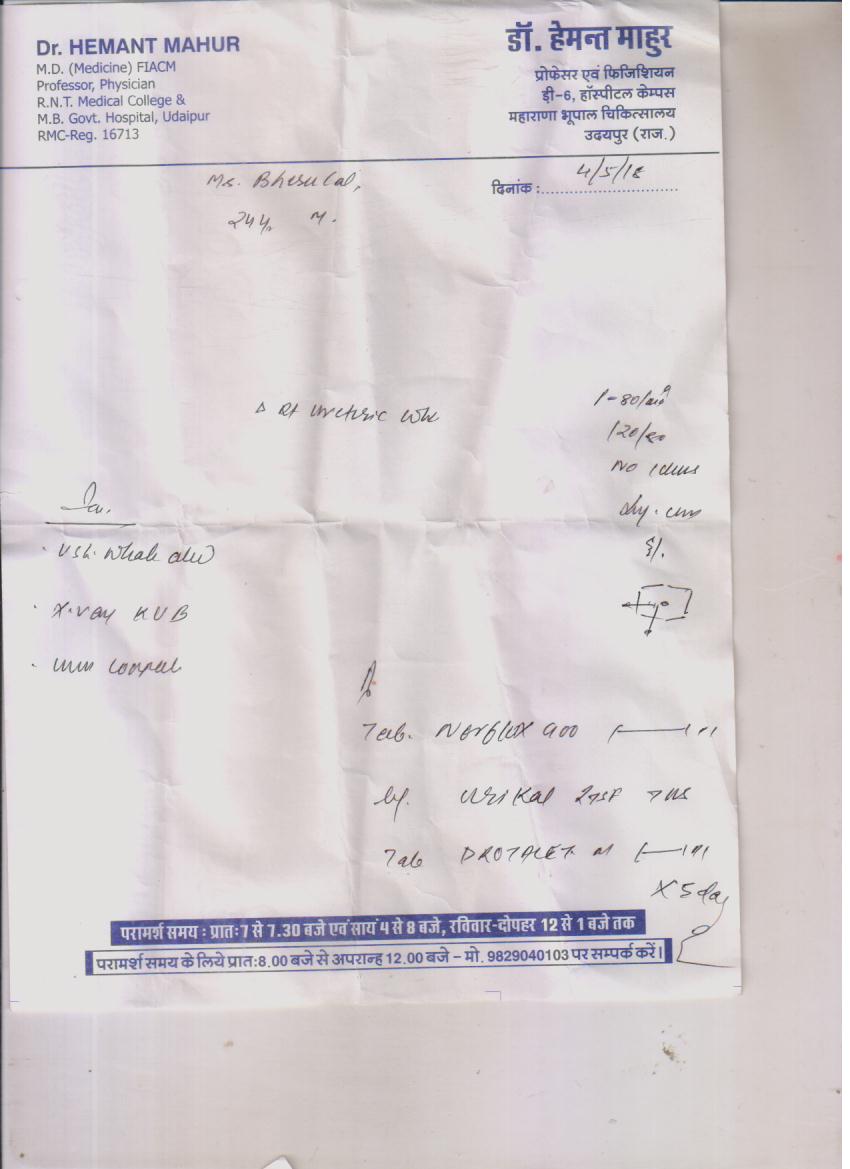 Dr. HEMANT MAHUR
M.D. (Medicine) FIACM
Professor, Physician
R.N.T. Medical College &
M.B. Govt. Hospital, Udaipur
RMC-Reg. 16713
डॉ. हेमन्त माहुर
प्रोफेसर एवं फिजिशियन
डी-6, हॉस्पीटल केम्पस
महाराणा भूपाल चिकित्सालय
उदयपुर (राज.)
दिनांक : 4/5/18
Bherulal,
24y. M.
Δ Rt Ureteric
P-80/min
120/80
No
X-ray KUB
Tab. Norflox 400
Urikal
Tab DROTALET. M
X 5 day
परामर्श समय : प्रातः7 से 7.30 बजे एवं सायं 4 से 8 बजे, रविवार-दोपहर 12 से 1 बजे तक
परामर्श समय के लिये प्रातः8.00 बजे से अपरान्ह 12.00 बजे - मो. 9829040103 पर सम्पर्क करें।